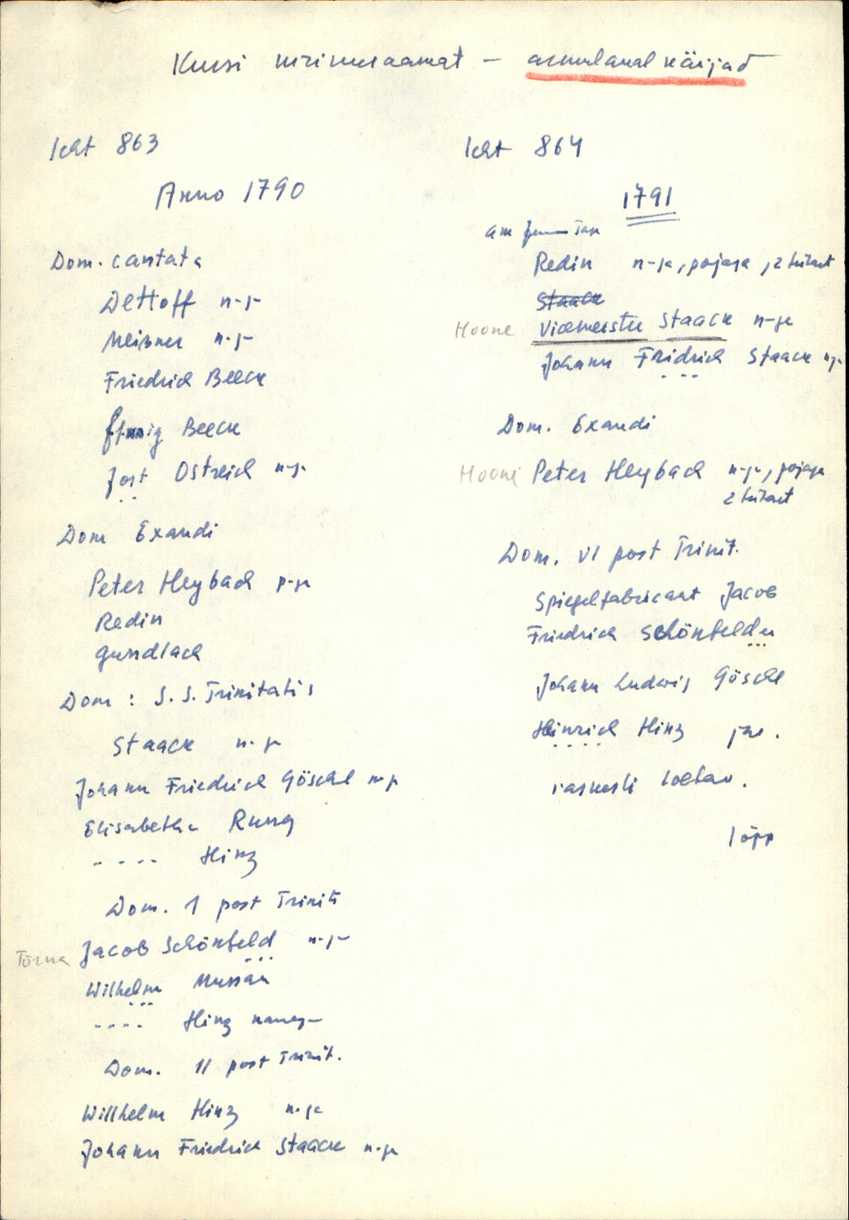 Kursi kirikuraamat – armulaual käijad
lcht 863
Anno 1790
Dom. cantata
Dettoff n-ga
Meisner n-g
Friedrich Beeck
Beeck
Jost Ostreich n-g.
Dom Exaudi
Peter Heybach p-ga
Redin
Gundlach
Dom : S.S. Trinitatis
Staack n-ga
Johann Friedrich Göschl n-g
Elisabetha Rung
---- Hinz
Dom. 1 post Trinit
Torma Jacob Schönfeld n-g-
Wilhelm Mussau
---- Hinz
Dom. II post Trinit.
Willhelm Hinz n-ga
Johann Friedrich Staack n-ga
lcht 864
1791
am
Redin n-ga, pojaga, 2 tütart
Staack
Moone Vicemeister Staack n-ga
Johann Fridrich Staack n-ga
Dom. Exaudi
Moone Peter Heybach n-ga, pojaga
2 tütart
Dom. VI post Trinit.
Spiegelfabricant Jacob
Friedrich Schönfelder
Johann Ludwig Göschl
Heinrich Hinz jne.
raskesti loetav.
lõpp